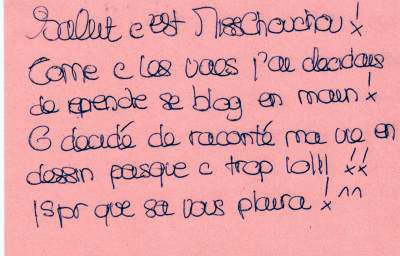 Salut c'est MissChouchou !
Come c les vacs j'ai décidais
de rependr se blog en main !
G decidé de raconté ma vie en
dessin pasque c trop lolll !!
J'spr que sa vous plaira ! ^^